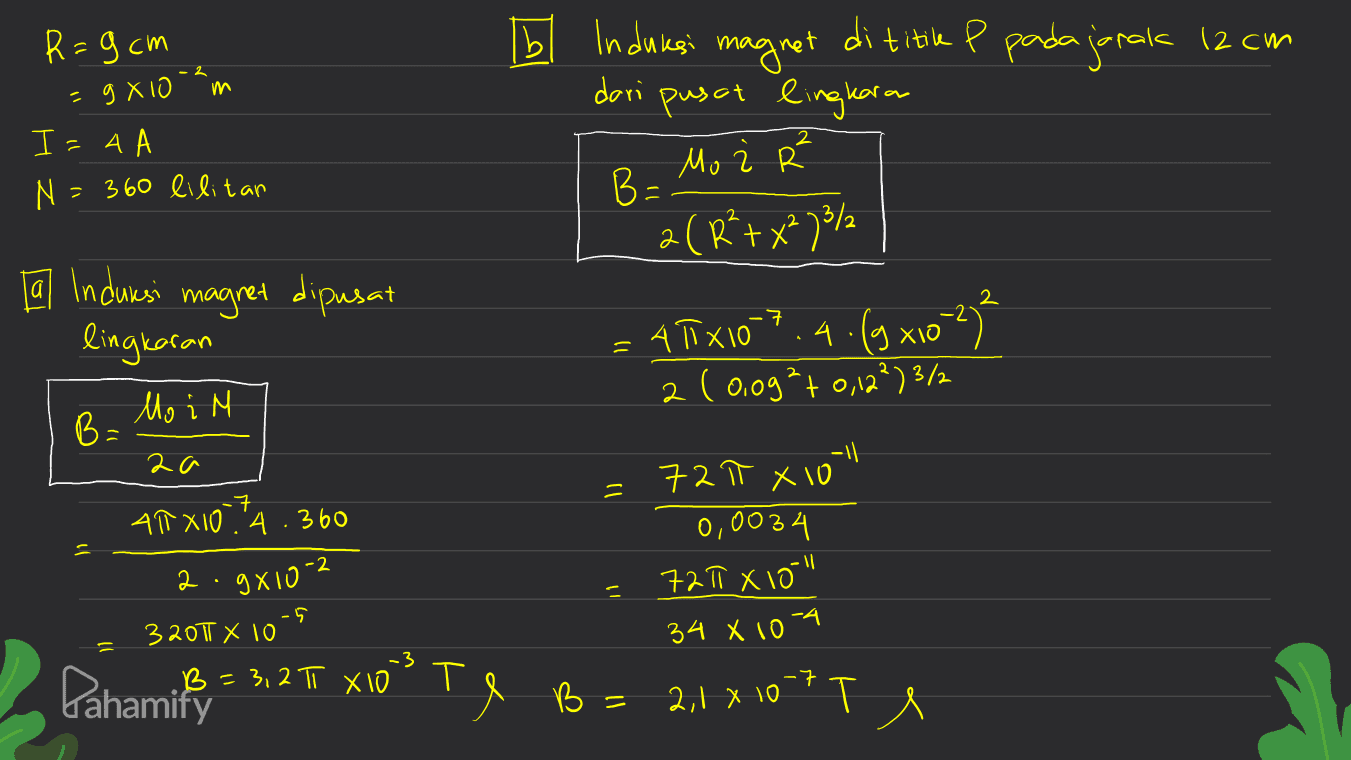 R = 9 cm
= 9 x 10⁻² m
I = 4 A
N = 360 lilitan
a Induksi magnet dipusat
lingkaran
B = μ₀ i N / 2a
= 4π x 10⁻⁷ . 4 . 360 / 2 . 9 x 10⁻²
= 320π x 10⁻⁵
B = 3,2 π x 10⁻³ T
b Induksi magnet di titik P pada jarak 12 cm
dari pusat lingkaran
B = μ₀ i R² / 2 (R² + x²)^3/2
= 4π x 10⁻⁷ . 4 . (9 x 10⁻²)² / 2 (0,09² + 0,12²)^3/2
= 72 π x 10⁻¹¹ / 0,0034
= 72π x 10⁻¹¹ / 34 x 10⁻⁴
B = 2,1 x 10⁻⁷ T
Pahamify